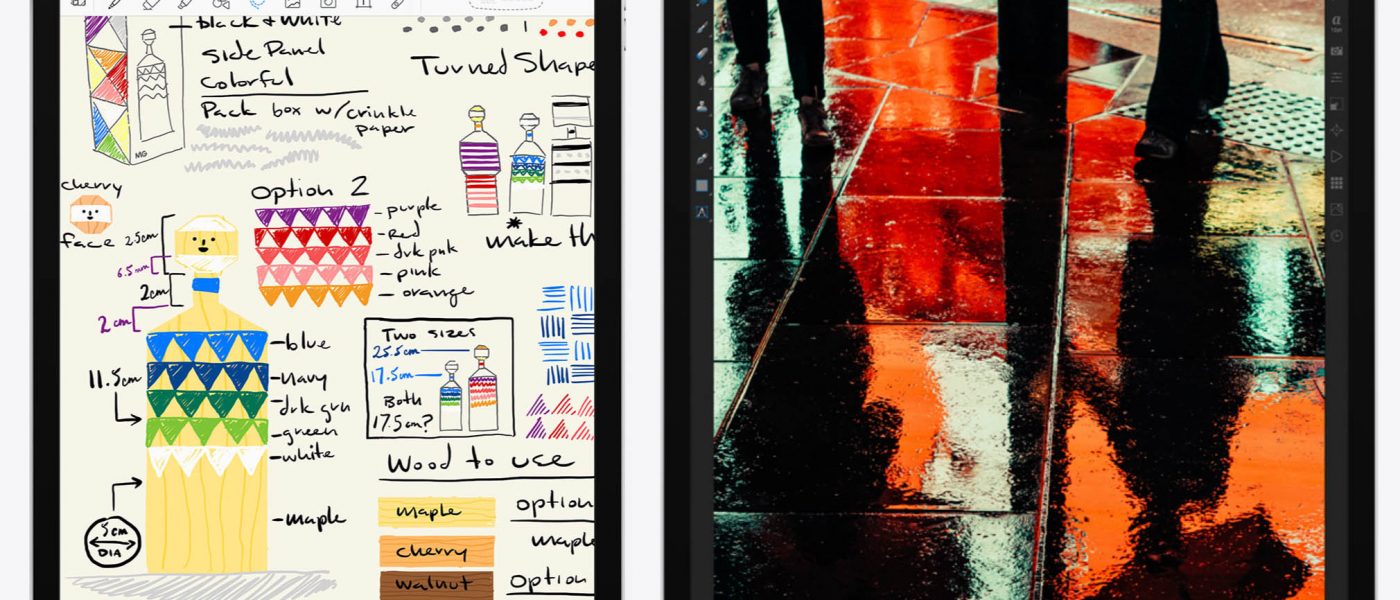 black & white
Side Panel
Colorful
Pack box w/crinkle
paper
MG
Turned Shape
cherry
face
2.5cm
6.5mm
2cm
2cm
11.5cm
5cm
DIA
Option 2
purple
Red
drk pnk
pink
orange
make th
blue
navy
drk grn
green
white
maple
Two sizes
25.5cm
17.5cm
Both
17.5cm?
Wood to use
maple
cherry
walnut
option
maple
option